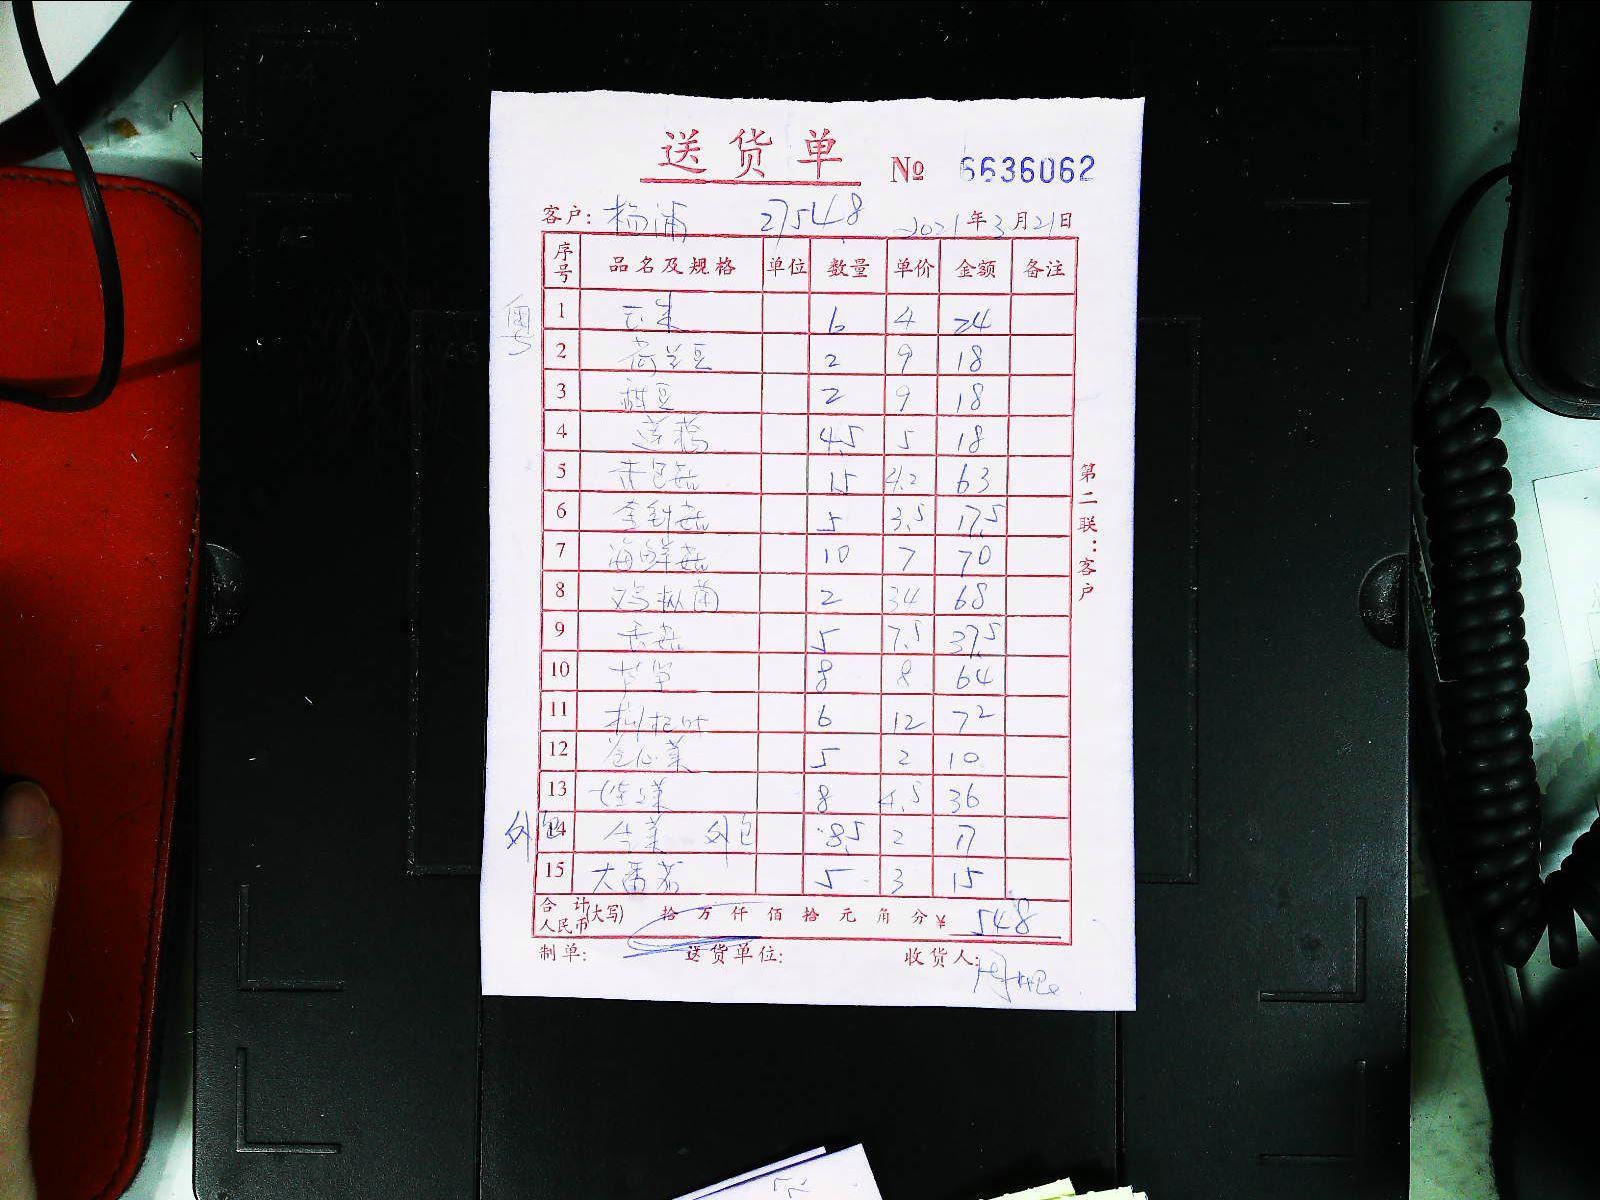 送货单 № 6636062
客户: 杨浦 27548 2021年3月21日
序号 品名及规格 单位 数量 单价 金额 备注
1 玉米 6 4 24
2 荷兰豆 2 9 18
3 甜豆 2 9 18
4 4.5 5 18
5 4.2 63
6 金针菇 5 3.5 17.5
7 海鲜菇 10 7 70
8 鸡枞菌 2 34 68
9 香菇 5 7.5 37.5
10 芦笋 8 8 64
11 6 12 72
12 卷心菜 5 2 10
13 娃娃菜 8 4.5 36
外包 14 生菜 外包 8.5 2 17
15 大番茄 5 3 15
合计人民币(大写) 拾 万 仟 佰 拾 元 角 分 ¥ 548
制单: 送货单位: 收货人:
第二联:客户